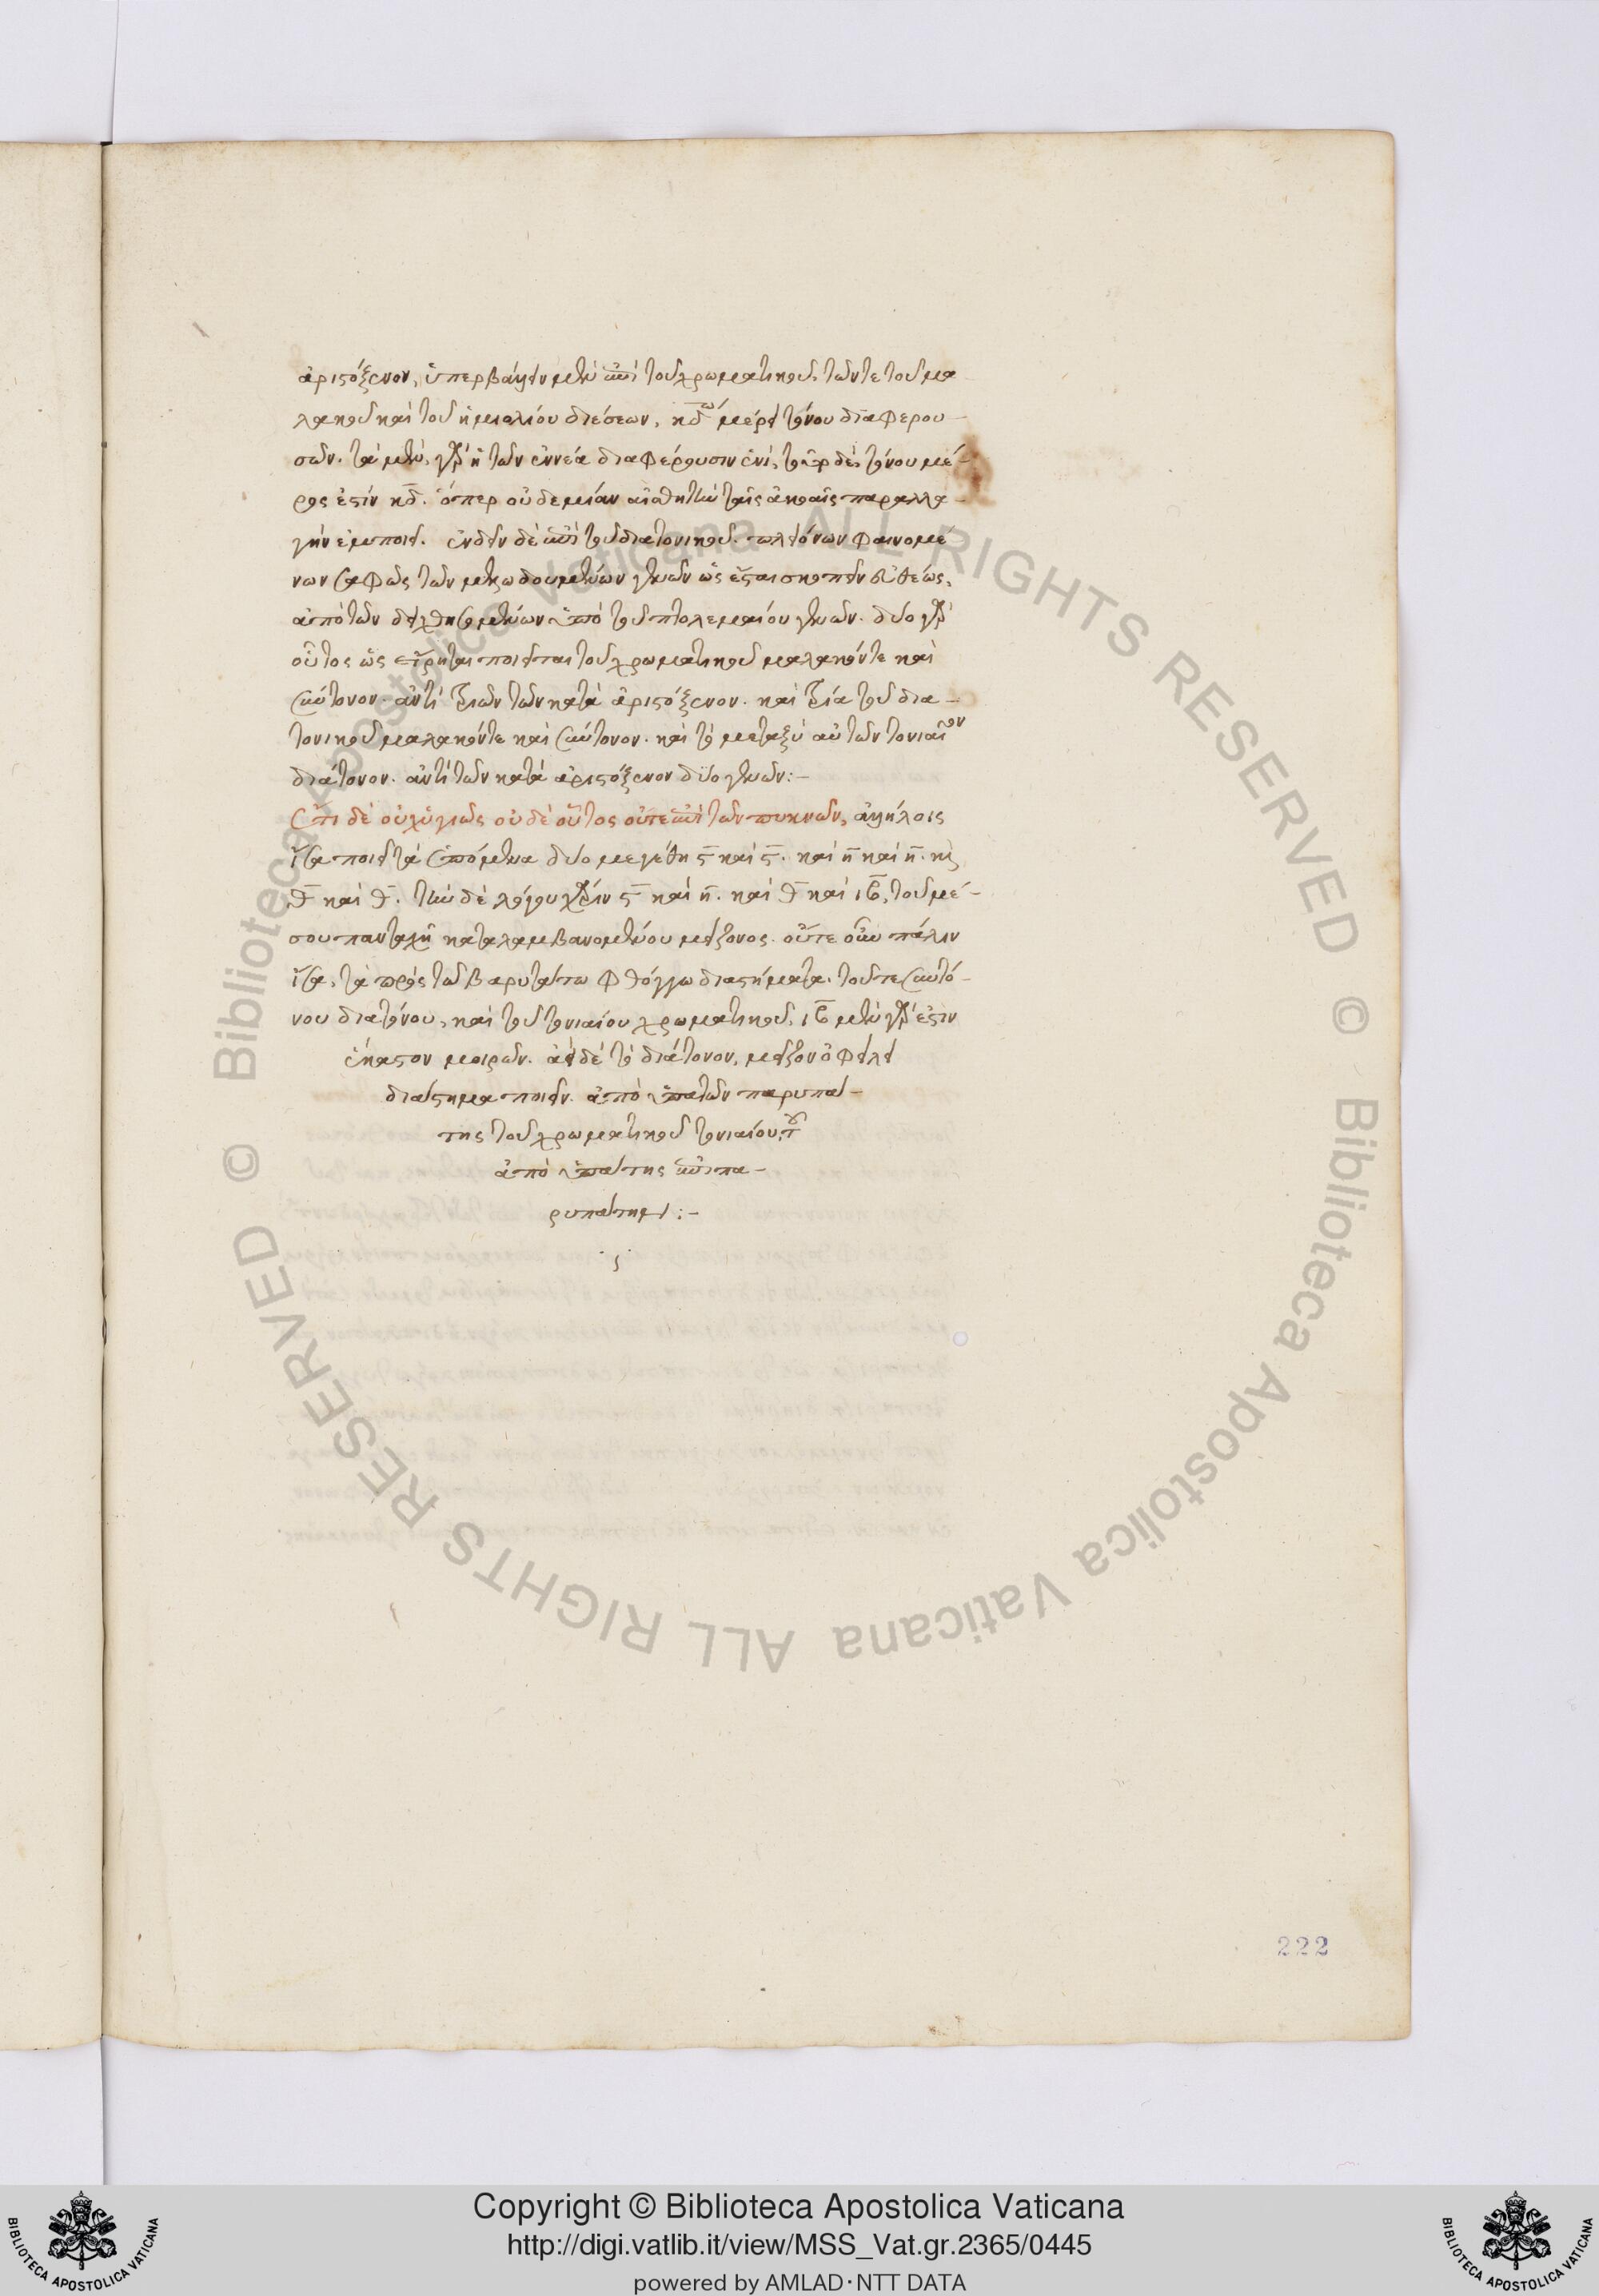 ἀριστόξενον, ὑπερβάλλειν μὲν ἐπὶ τοῦ χρωματικοῦ, τῶν τε τοῦ μα
λακοῦ καὶ τοῦ ἡμιολίου διέσεων, κδ̅ω μέρει τόνου διαφερου-
σῶν. τὰ μὲν γὰρ η τῶν ἐννέα διαφέρουσιν ἑνί, τὸ δὲ τόνου μέ-
ρος ἐστὶν κδ̅. ὅπερ οὐδεμίαν αἰσθητὴν ταῖς ἀκοαῖς παραλλα-
γὴν ἐμποιεῖ. ἐνδεῖν δὲ ἐπὶ τοῦ διατονικοῦ. πλειόνων φαινομέ
νων σαφῶς τῶν μελῳδουμένων γενῶν ὡς ἔσται σκοπεῖν εὐθέως,
ἀπὸ τῶν δειχθησομένων ὑπὸ τοῦ πτολεμαίου γενῶν. δύο γὰρ
οὗτος ὡς εἴρηται ποιεῖται τοῦ χρωματικοῦ μαλακόν τε καὶ
σύντονον. ἀντὶ τριῶν τῶν κατὰ ἀριστόξενον. καὶ τρία τοῦ δια-
τονικοῦ μαλακόν τε καὶ σύντονον. καὶ τὸ μεταξὺ αὐτῶν τονιαῖον
διάτονον. ἀντὶ τῶν κατὰ ἀριστόξενον δύο γενῶν:-
Ἔτι δὲ οὐχ ὑγιῶς οὐδὲ οὗτος οὔτε ἐπὶ τῶν πυκνῶν, ἀλλήλοις
ἴσα ποιεῖ τὰ ἑπόμενα δύο μεγέθη ϛ̅ καὶ ϛ̅. καὶ η̅ καὶ η̅. καὶ
θ̅ καὶ θ̅. τὴν δὲ λόγου χάριν ϛ̅ καὶ η̅. καὶ θ̅ καὶ ιβ̅, τοῦ μέ-
σου πανταχῆ καταλαμβανομένου μείζονος. οὔτε οὖν πάλιν
ἴσα, τὰ πρὸς τῶ βαρυτάτω φθόγγω διαστήματα. τοῦ τε συντό-
νου διατόνου, καὶ τοῦ τονιαίου χρωματικοῦ, ιβ̅ μὲν γάρ ἐστιν
ἑκάστον μοιρῶν. ἀεὶ δὲ τὸ διάτονον, μεῖζον ὀφείλει
διάστημα ποιεῖν. ἀπὸ ὑπατῶν παρυπά-
της τοῦ χρωματικοῦ τονιαίου, τοῦ
ἀπὸ ὑπάτης ἐπὶ πα-
ρυπάτην:-
222
Copyright © Biblioteca Apostolica Vaticana
http://digi.vatlib.it/view/MSS_Vat.gr.2365/0445
powered by AMLAD·NTT DATA